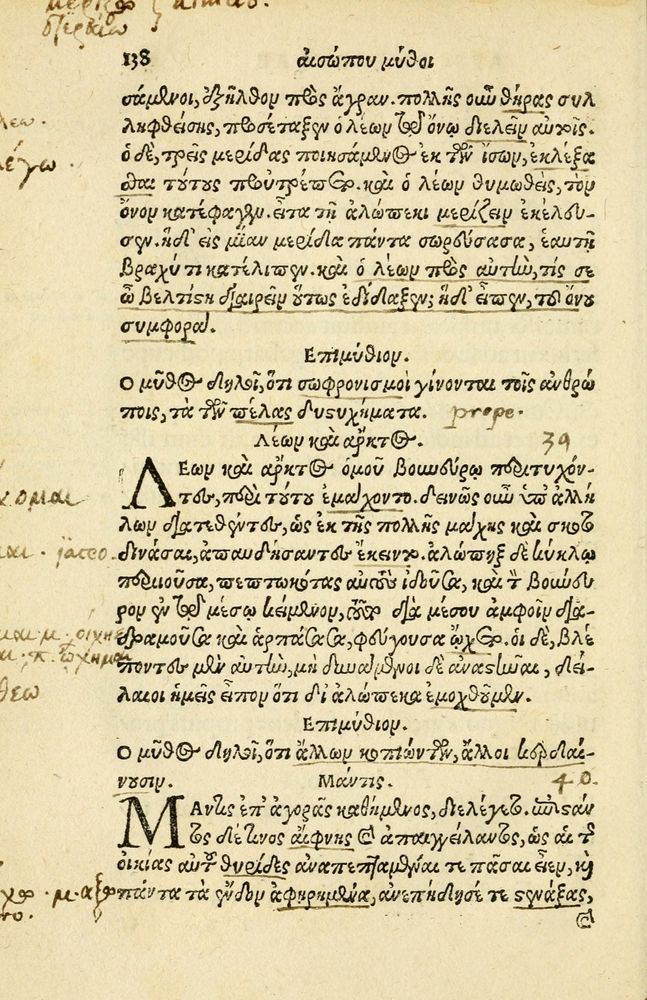 138 αἰσώπου μύθοι
σάμενοι, ἐξῆλθον πρὸς ἄγραν. πολλῆς οὖν θήρας συλ
ληφθείσης, προσέταξεν ὁ λέων τῷ ὄνῳ διελεῖν αὐτοῖς.
ὁ δὲ, τρεῖς μερίδας ποιησάμενος ἐκ τῶν ἴσων, ἐκλέξα
σθαι τούτους προὐτρέπετο. καὶ ὁ λέων θυμωθεὶς, τὸν
ὄνον κατέφαγεν. εἶτα τῇ ἀλώπεκι μερίζειν ἐκέλευ-
σεν. ἡ δ' εἰς μίαν μερίδα πάντα σωρεύσασα, ἑαυτῇ
βραχύ τι κατέλιπεν. καὶ ὁ λέων πρὸς αὐτὴν, τίς σε
ὦ βελτίστη διαιρεῖν οὕτως ἐδίδαξεν; ἡ δ' εἶπεν, τοῦ ὄνου
συμφορά.
Επιμύθιον.
Ο μῦθος δηλοῖ, ὅτι σωφρονισμοὶ γίνονται τοῖς ἀνθρώ
ποις, τὰ τῶν πέλας δυστυχήματα. prope.
Λέων καὶ ἄρκτος. 39
ΛΕων καὶ ἄρκτος ὁμοῦ βουνεύρῳ περιτυχόν-
τες, περὶ τούτου ἐμάχοντο. δεινῶς οὖν ὑπ' ἀλλή
λων διατεθέντες, ὡς ἐκ τῆς πολλῆς μάχης καὶ σκοτο
δινάσαι, ἀπαυδήσαντες ἔκειντο. ἀλώπηξ δὲ κύκλῳ
περιιοῦσα, πεπτωκότας αὐτοὺς ἰδοῦσα, καὶ τὸ βουνεύ
ρον ἐν τῷ μέσῳ κείμενον, τοῦτο διὰ μέσου ἀμφοῖν δια-
δραμοῦσα καὶ ἁρπάσασα, φεύγουσα ᾤχετο. οἱ δὲ, βλέ
ποντες μὲν αὐτὴν, μὴ δυνάμενοι δὲ ἀναστῆναι, δεί-
λαιοι ἡμεῖς εἶπον ὅτι δι' ἀλώπεκα ἐμοχθοῦμεν.
Επιμύθιον.
Ο μῦθος δηλοῖ, ὅτι ἄλλων κοπιώντων, ἄλλοι κερδαί-
νουσιν. Μάντις. 40.
ΜΑντις ἐπ' ἀγορᾶς καθήμενος, διελέγετο. ἐπιστάν
τος δέ τινος αἴφνης καὶ ἀπαγγείλαντος, ὡς αἱ τῆς
οἰκίας αὐτοῦ θυρίδες ἀναπεπταμέναι τε πᾶσαι εἶεν, καὶ
πάντα τὰ ἔνδον ἀφῃρημένα, ἀνεπήδησέ τε στενάξας,
καὶ